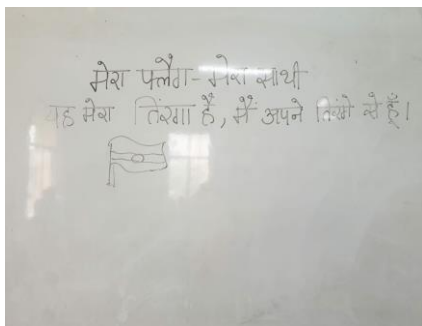 मेरा फ्लैग - मेरा साथी
यह मेरा तिंरगा है, मैं अपने तिरंगे से हूँ।